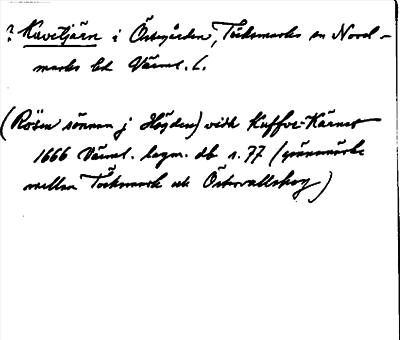 ? Kavetjärn i Östegården, Töcksmarks sn Nord-
marks hd Värml. l.
(Rösen sönnan j Högden) vidh Kaffve-Kärnet
1666 Värml. lagm. db s. 77 (gränsmärke
mellan Töcksmark och Östervallskog)